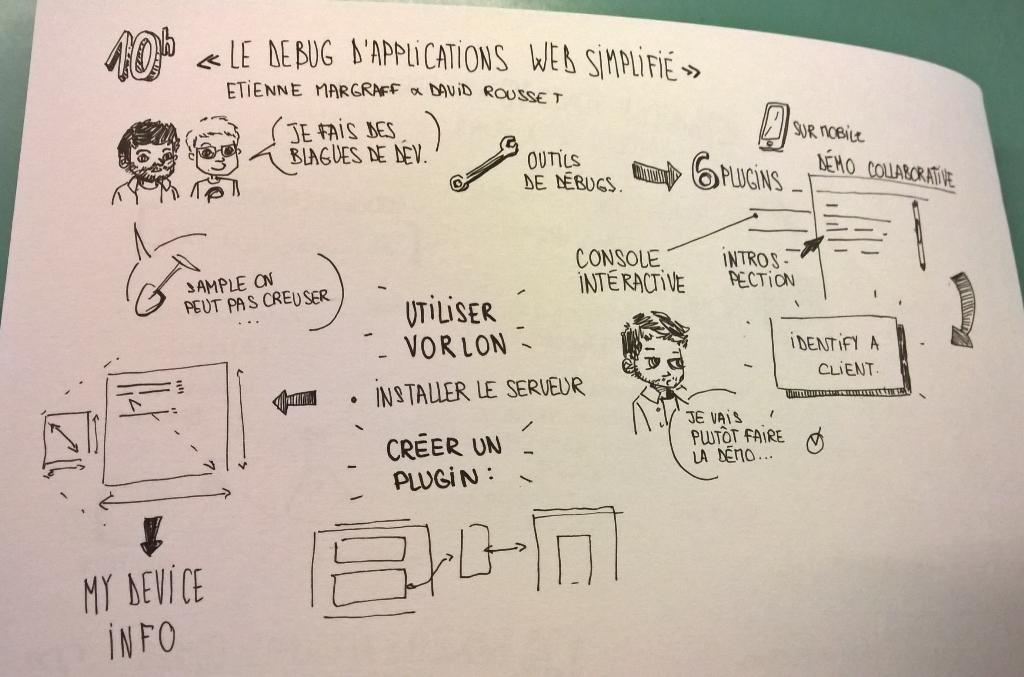 10h
« LE DEBUG D'APPLICATIONS WEB SIMPLIFIÉ »
ETIENNE MARGRAFF & DAVID ROUSSET
JE FAIS DES
BLAGUES DE DÉV.
OUTILS
DE DÉBUGS.
6 PLUGINS
SUR MOBILE
DÉMO COLLABORATIVE
CONSOLE
INTÉRACTIVE
INTROS-
PECTION
SAMPLE ON
PEUT PAS CREUSER
...
UTILISER
VORLON
IDENTIFY A
CLIENT.
• INSTALLER LE SERVEUR
JE VAIS
PLUTÔT FAIRE
LA DÉMO...
CRÉER UN
PLUGIN :
MY DEVICE
INFO